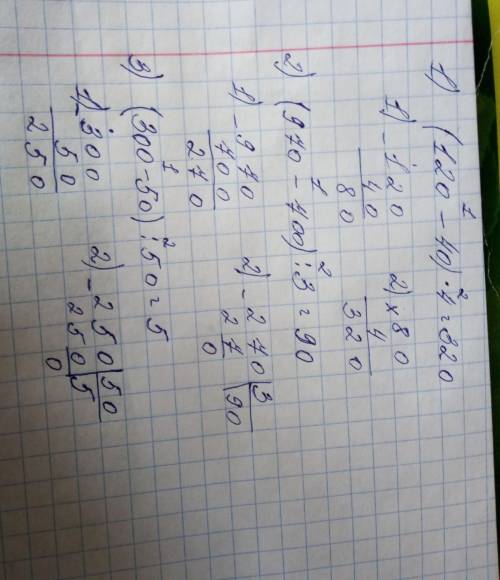 1) (120 - 40) · 4 = 320
1 2
1) - 120 2) x 80
40 4
80 320
2) (970 - 700) : 3 = 90
1 2
1) - 970 2) - 270 | 3
700 27 | 90
270 0
3) (300 - 50) : 50 = 5
1 2
1) - 300 2) - 250 | 50
50 250 | 5
250 0